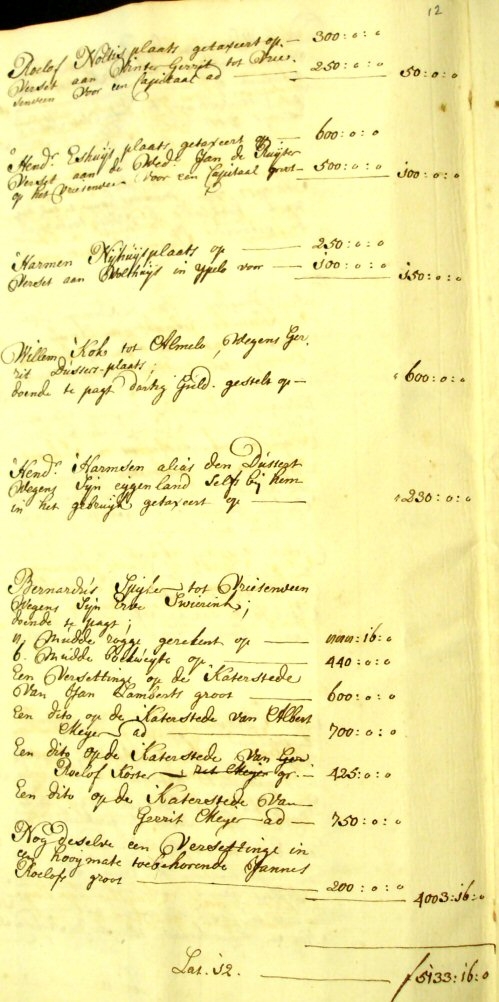 12
Roelof Noltis plaats getaxeert op — 300:0:0
Verset aan Winter Gerrit tot Vrie-
senveen voor een Capitaal ad — 250:0:0 50:0:0
Hend.r Eshuijs plaats getaxeert op — 600:0:0
Verset aan de Wed.e Jan de Ruijter
op het Vriesenveen voor een Capitaal groot — 500:0:0 100:0:0
Harmen Nijhuijs plaats op — 250:0:0
Verset aan Wolthuijs in Ypelo voor — 100:0:0 150:0:0
Willem Kok tot Almelo, Wegens Ger-
rit Dussers-plaats;
doende te pagt dartig Guld. gestelt op — 600:0:0
Hend.r Harmsen alias den Dussert
Wegens Sijn eijgen land Selfs bij hem
in het gebruijk getaxeert op — 230:0:0
Bernardus Spijker tot Vriesenveen
Wegens Sijn Erve Swierink;
doende te pagt;
11. Mudde rogge gerekent op — 888:16:0
6. Mudde Boekweijte op. — 440:0:0
Een Versettinge op de Katerstede
Van Jan Lamberts groot — 600:0:0
Een dito op de Katerstede van Albert
Meyer ad — 700:0:0
Een dito op de Katerstede Van Ger
Roelof Korter rit Meyer gr. — 425:0:0
Een dito op de Katerstede Van
Gerrit Meyer ad — 750:0:0
Nog deselve een Versettinge in
een hooymate toebehorende Jannes
Roelofs groot — 200:0:0 4003:16:0
Lat. 12. — f 5133:16:0